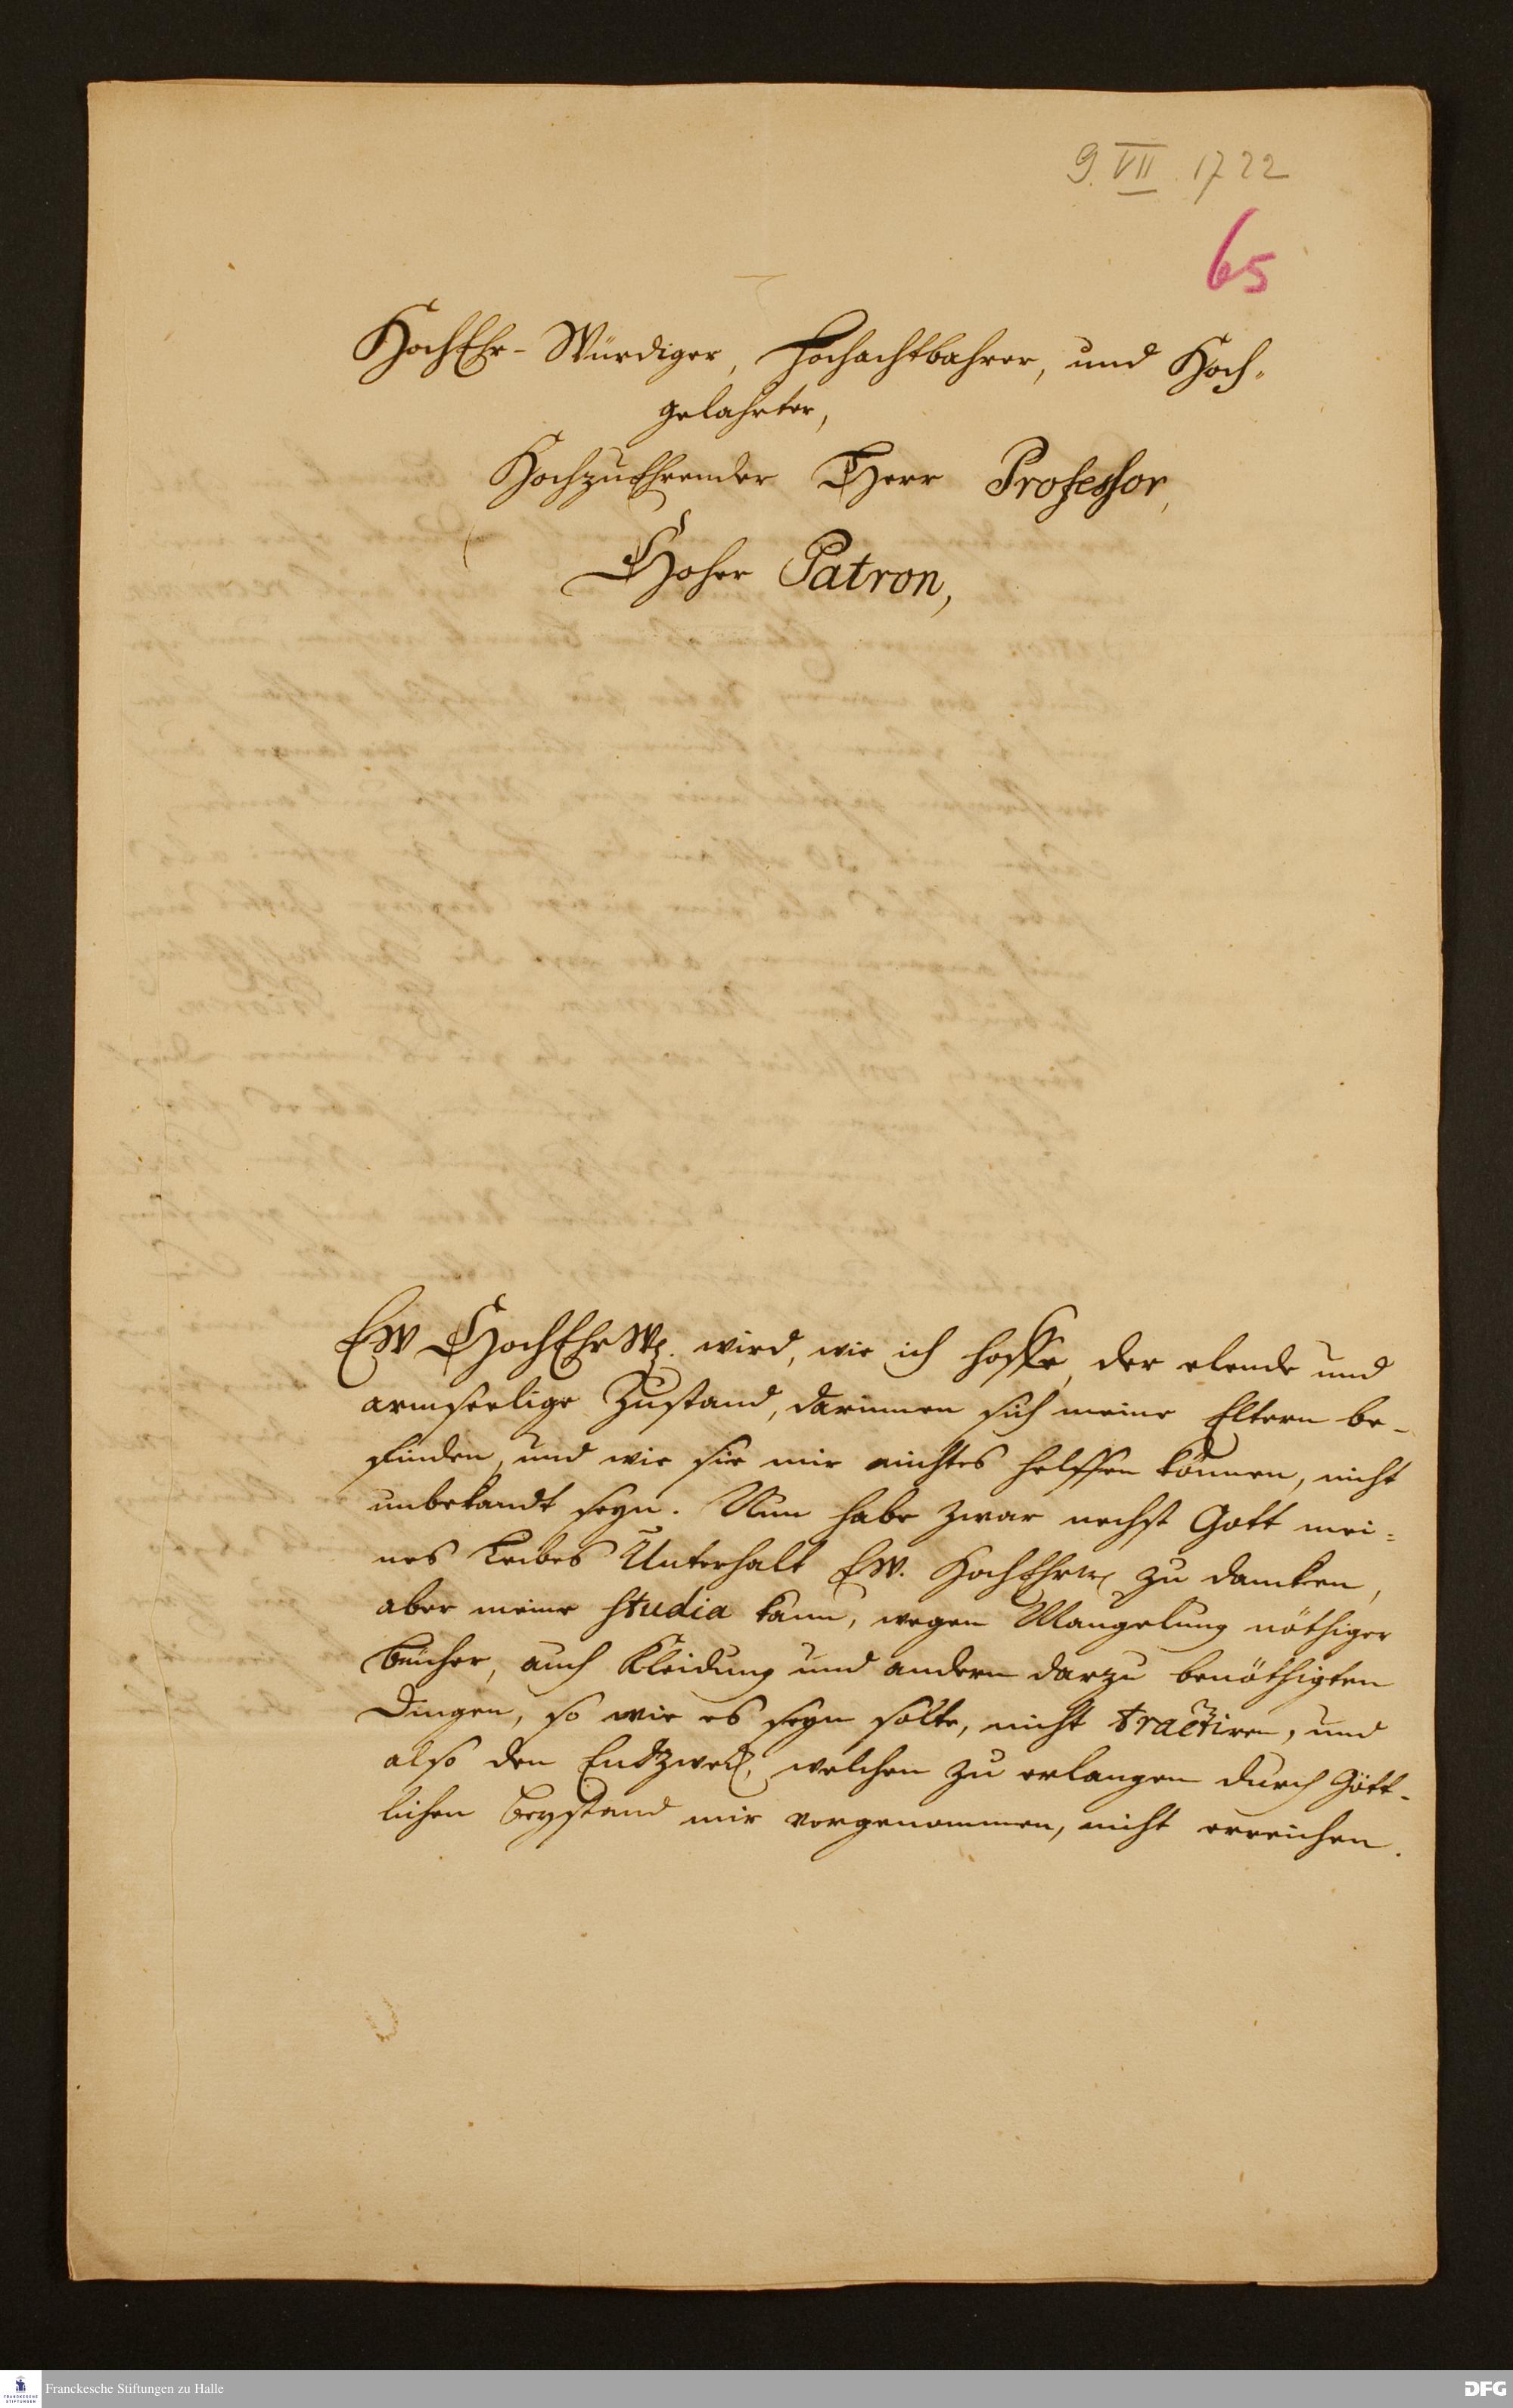 9. VII. 1722
65
HochEhr-Würdiger, Hochachtbahrer, und Hoch-
gelahrter,
HochzuEhrender Herr Professor,
Hoher Patron,
EW HochEhrW. wird, wie ich hoffe, der elende und
armseelige Zustand, darinnen sich meine Eltern be-
finden, und wie sie mir nichtes helffen können, nicht
unbekandt seyn. Nun habe zwar nechst Gott mei-
nes Leibes Unterhalt EW. HochEhrw. zu dancken,
aber meine studia kann, wegen Mangelung nöthiger
Bücher, auch Kleidung und andern darzu benöthigten
Dingen, so wie es seyn solte, nicht tractiren, und
also den Endzweck, welchen zu erlangen durch Gött-
lichen Beystand mir vorgenommen, nicht erreichen.
Franckesche Stiftungen zu Halle
FRANCKESCHE STIFTUNGEN
DFG